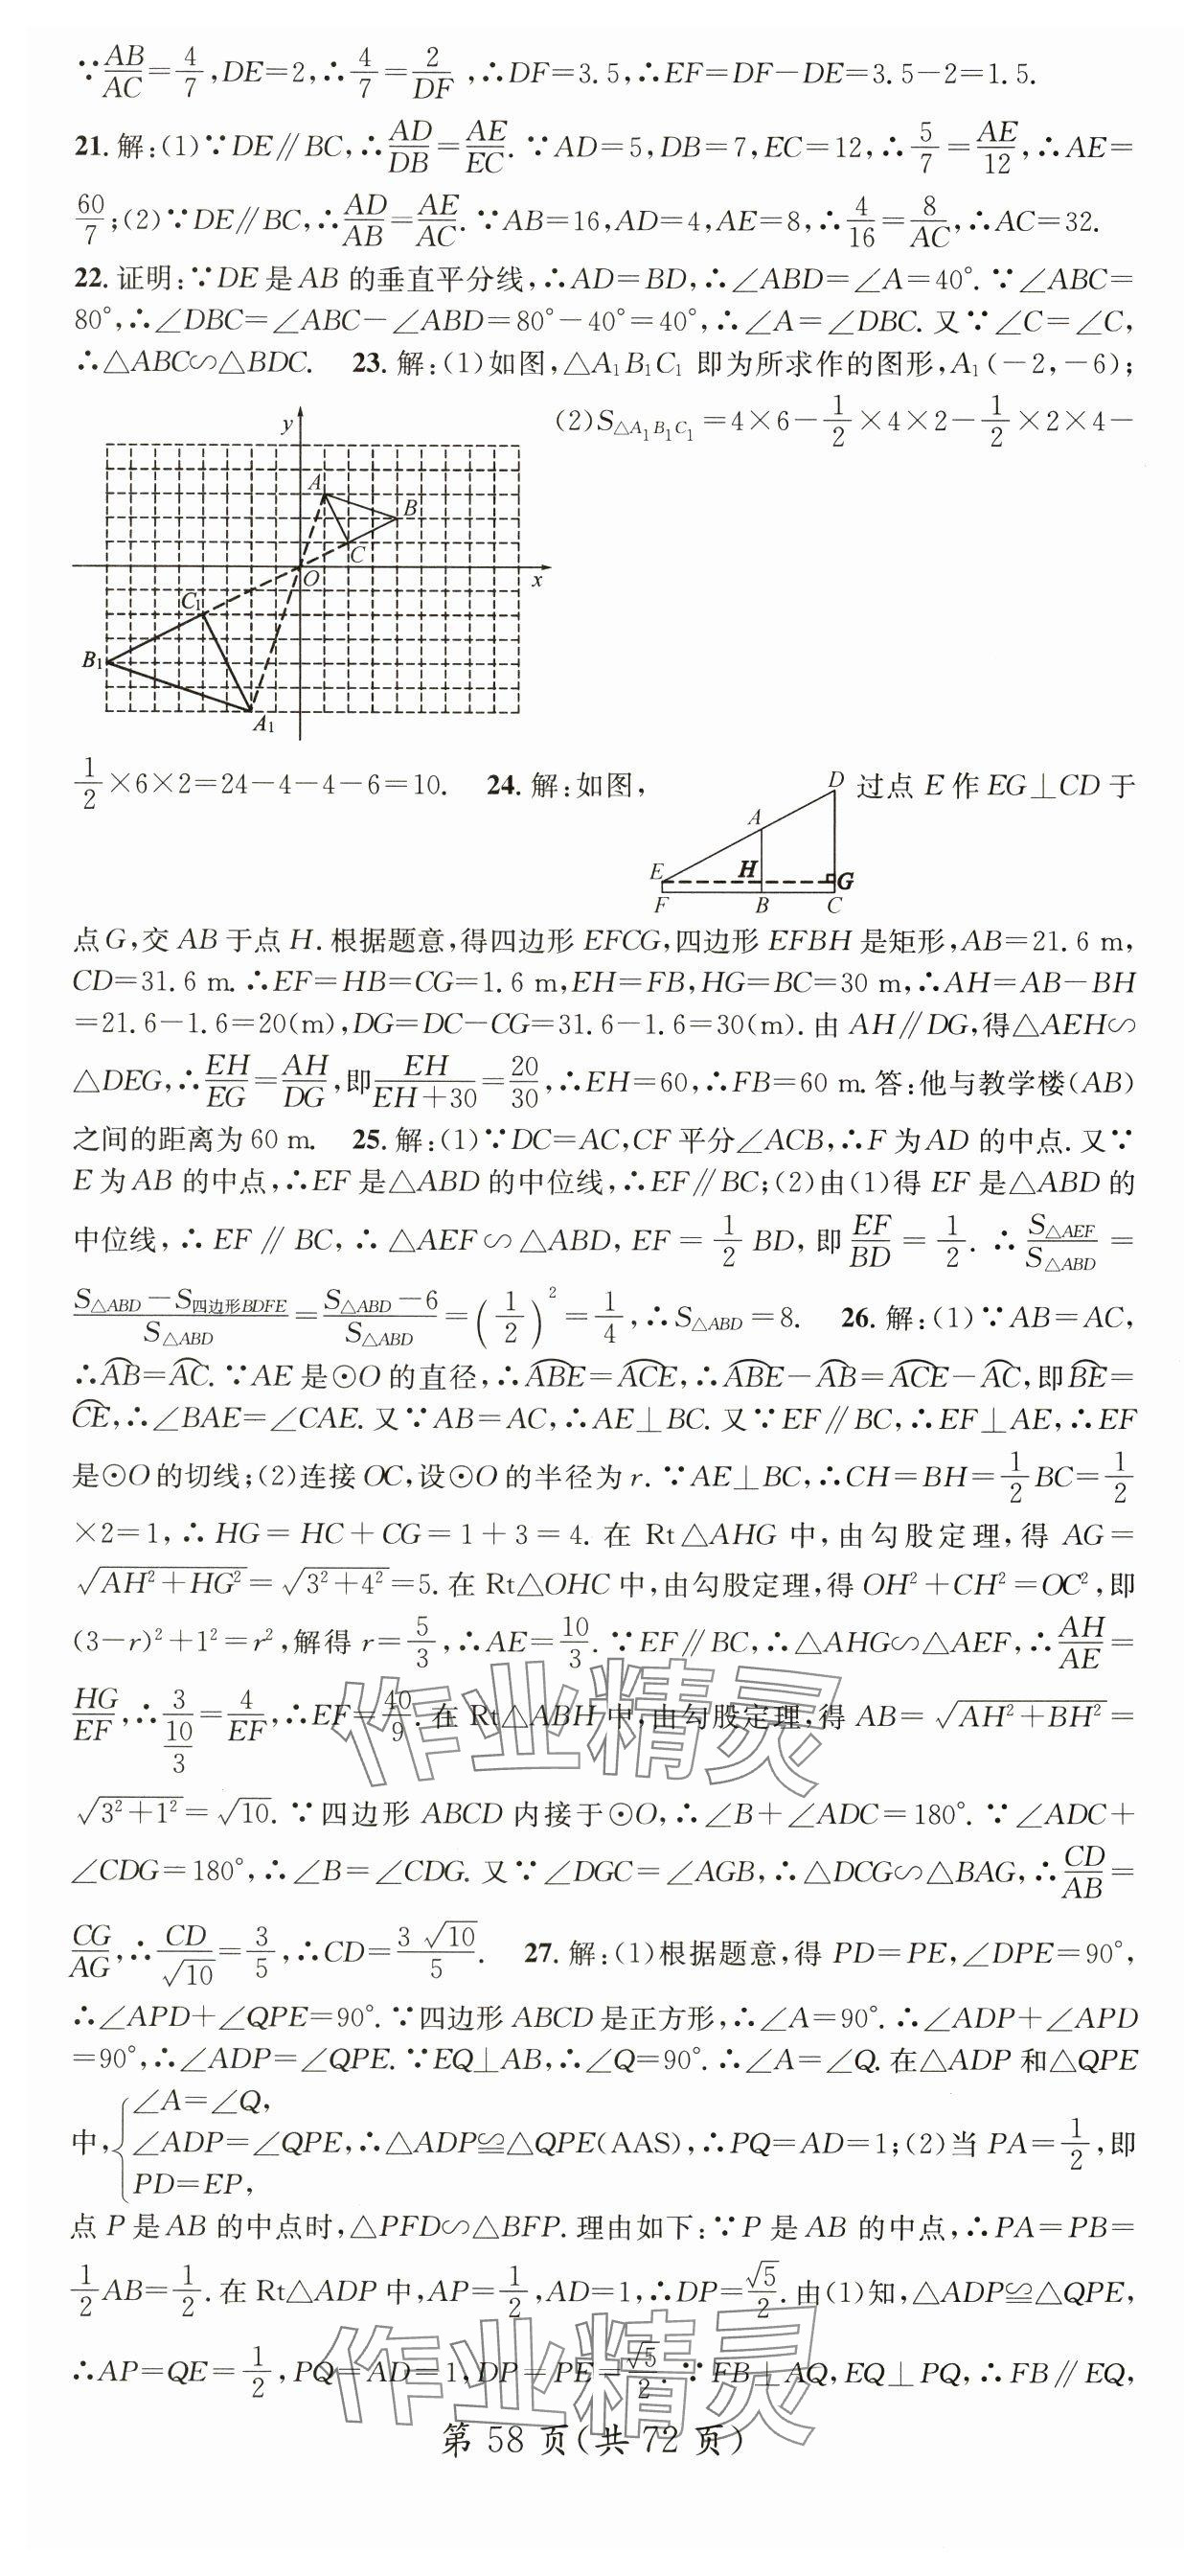 ∵AB/AC=4/7,DE=2,∴4/7=2/DF,∴DF=3.5,∴EF=DF-DE=3.5-2=1.5.
21.解:(1)∵DE∥BC,∴AD/DB=AE/EC.∵AD=5,DB=7,EC=12,∴5/7=AE/12,∴AE=
60/7;(2)∵DE∥BC,∴AD/AB=AE/AC.∵AB=16,AD=4,AE=8,∴4/16=8/AC,∴AC=32.
22.证明:∵DE是AB的垂直平分线,∴AD=BD,∴∠ABD=∠A=40°.∵∠ABC=
80°,∴∠DBC=∠ABC-∠ABD=80°-40°=40°,∴∠A=∠DBC.又∵∠C=∠C,
∴△ABC∽△BDC. 23.解:(1)如图,△A₁B₁C₁即为所求作的图形,A₁(-2,-6);
(2)S△A₁B₁C₁=4×6-1/2×4×2-1/2×2×4-
y
A
B
C
O
x
C₁
B₁
A₁
1/2×6×2=24-4-4-6=10. 24.解:如图, 过点E作EG⊥CD于
D
A
E
H
G
F
B
C
点G,交AB于点H.根据题意,得四边形EFCG,四边形EFBH是矩形,AB=21.6 m,
CD=31.6 m.∴EF=HB=CG=1.6 m,EH=FB,HG=BC=30 m,∴AH=AB-BH
=21.6-1.6=20(m),DG=DC-CG=31.6-1.6=30(m).由AH∥DG,得△AEH∽
△DEG,∴EH/EG=AH/DG,即EH/(EH+30)=20/30,∴EH=60,∴FB=60 m.答:他与教学楼(AB)
之间的距离为60 m. 25.解:(1)∵DC=AC,CF平分∠ACB,∴F为AD的中点.又∵
E为AB的中点,∴EF是△ABD的中位线,∴EF∥BC;(2)由(1)得EF是△ABD的
中位线,∴EF∥BC,∴△AEF∽△ABD,EF=1/2BD,即EF/BD=1/2.∴S△AEF/S△ABD=
(S△ABD-S四边形BDFE)/S△ABD=(S△ABD-6)/S△ABD=(1/2)²=1/4,∴S△ABD=8. 26.解:(1)∵AB=AC,
∴⌒AB=⌒AC.∵AE是⊙O的直径,∴⌒ABE=⌒ACE,∴⌒ABE-⌒AB=⌒ACE-⌒AC,即⌒BE=
⌒CE,∴∠BAE=∠CAE.又∵AB=AC,∴AE⊥BC.又∵EF∥BC,∴EF⊥AE,∴EF
是⊙O的切线;(2)连接OC,设⊙O的半径为r.∵AE⊥BC,∴CH=BH=1/2BC=1/2
×2=1,∴HG=HC+CG=1+3=4.在Rt△AHG中,由勾股定理,得AG=
√(AH²+HG²)=√(3²+4²)=5.在Rt△OHC中,由勾股定理,得OH²+CH²=OC²,即
(3-r)²+1²=r²,解得r=5/3,∴AE=10/3.∵EF∥BC,∴△AHG∽△AEF,∴AH/AE=
HG/EF,∴3/(10/3)=4/EF,∴EF=40/9.在Rt△ABH中,由勾股定理,得AB=√(AH²+BH²)=
√(3²+1²)=√10.∵四边形ABCD内接于⊙O,∴∠B+∠ADC=180°.∵∠ADC+
∠CDG=180°,∴∠B=∠CDG.又∵∠DGC=∠AGB,∴△DCG∽△BAG,∴CD/AB=
CG/AG,∴CD/√10=3/5,∴CD=3√10/5. 27.解:(1)根据题意,得PD=PE,∠DPE=90°,
∴∠APD+∠QPE=90°.∵四边形ABCD是正方形,∴∠A=90°.∴∠ADP+∠APD
=90°,∴∠ADP=∠QPE.∵EQ⊥AB,∴∠Q=90°.∴∠A=∠Q.在△ADP和△QPE
∠A=∠Q,
中,{∠ADP=∠QPE,∴△ADP≌△QPE(AAS),∴PQ=AD=1;(2)当PA=1/2,即
PD=EP,
点P是AB的中点时,△PFD∽△BFP.理由如下:∵P是AB的中点,∴PA=PB=
1/2AB=1/2.在Rt△ADP中,AP=1/2,AD=1,∴DP=√5/2.由(1)知,△ADP≌△QPE,
∴AP=QE=1/2,PQ=AD=1,DP=PE=√5/2.∵FB⊥AQ,EQ⊥PQ,∴FB∥EQ,
第58页(共72页)
作业精灵
作业精灵